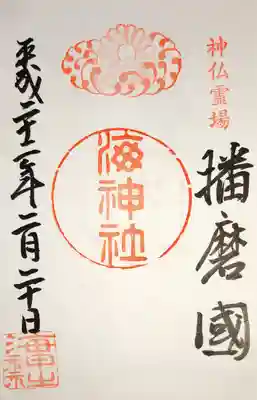 神仏霊場
播磨國
海神社
平成二十二年二月二十日